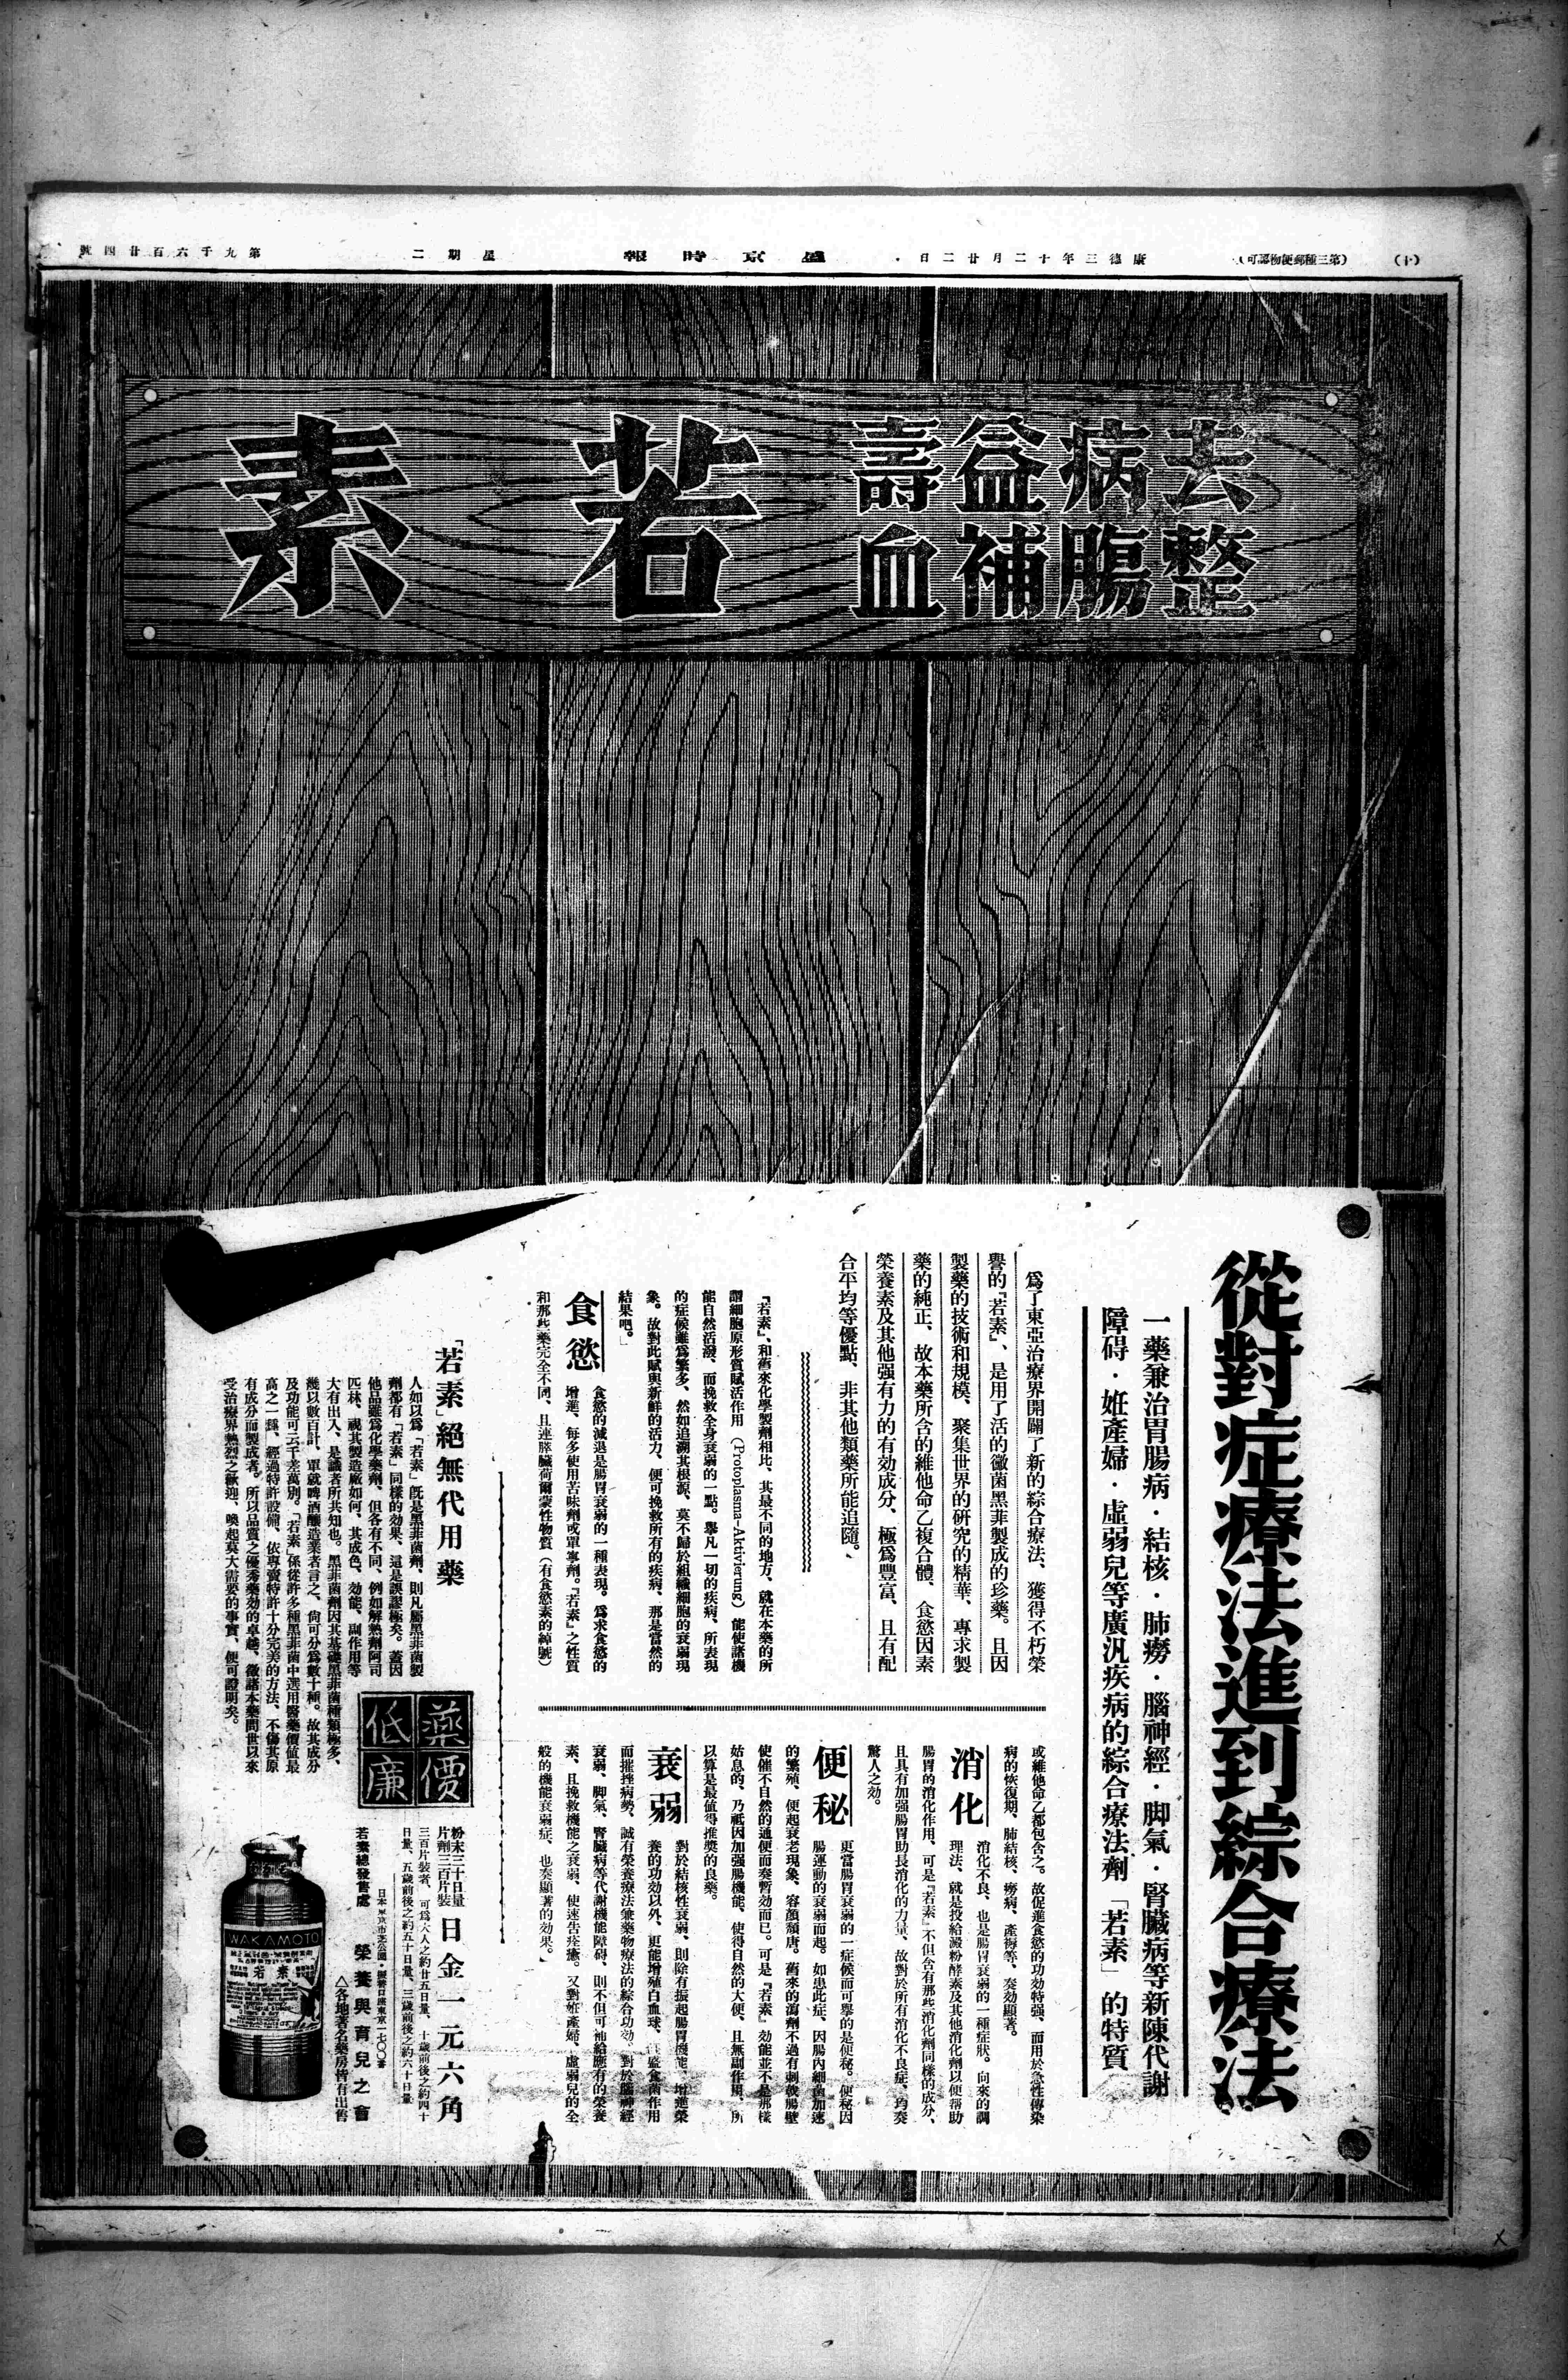 （十）
（第三種郵便物認可）
康德三年十二月廿二日
盛京時報
星期二
第九千六百廿四號
去病益壽
整腸補血
若素
從對症療法進到綜合療法
一藥兼治胃腸病・結核・肺癆・腦神經・脚氣・腎臟病等新陳代謝
障碍・姙產婦・虛弱兒等廣汎疾病的綜合療法劑「若素」的特質
爲了東亞治療界開闢了新的綜合療法、獲得不朽榮
譽的『若素』、是用了活的黴菌黑非製成的珍藥。且因
製藥的技術和規模、聚集世界的研究的精華、專求製
藥的純正、故本藥所含的維他命乙複合體、食慾因素
榮養素及其他强有力的有効成分、極爲豐富、且有配
合平均等優點、非其他類藥所能追隨。
『若素』、和舊來化學製劑相比、其最不同的地方、就在本藥的所
謂細胞原形質賦活作用（Protoplasma-Aktivierung）能使諸機
能自然活潑、而挽救全身衰弱的一點。舉凡一切的疾病、所表現
的症候雖爲繁多、然如追溯其根源、莫不歸於組織細胞的衰弱現
象。故對此賦與新鮮的活力、便可挽救所有的疾病、那是當然的
結果吧。
食慾
食慾的減退是腸胃衰弱的一種表現。爲求食慾的
增進、每多使用苦味劑或單寧劑。『若素』之性質
和那些藥完全不同、且連膵臟荷爾蒙性物質（有食慾素的綽號）
或維他命乙都包含之。故促進食慾的功効特强、而用於急性傳染
病的恢復期、肺結核、癆病、產褥等、奏効顯著。
消化
消化不良、也是腸胃衰弱的一種症狀。向來的調
理法、就是投給澱粉酵素及其他消化劑以便幫助
腸胃的消化作用、可是『若素』不但含有那些消化劑同樣的成分、
且具有加强腸胃助長消化的力量、故對於所有消化不良症、均奏
驚人之効。
便秘
更當腸胃衰弱的一症候而可擧的是便秘。便秘因
腸運動的衰弱而起。如患此症、因腸內細菌加速
的繁殖、便起衰老現象、容顏頹唐。舊來的瀉劑不過有刺戟腸壁
使催不自然的通便而奏暫効而已。可是『若素』効能並不是那樣
姑息的、乃祗因加强腸機能、使得自然的大便、且無副作用、所
以算是最値得推奬的良藥。
衰弱
對於結核性衰弱、則除有振起腸胃機能、增進榮
養的功効以外、更能增殖白血球、旺盛食菌作用
而摧挫病勢、誠有榮養療法兼藥物療法的綜合功効。對於腦神經
衰弱、脚氣、腎臟病等代謝機能障碍、則不但可補給應有的榮養
素、且挽救機能之衰弱、使速告痊癒。又對姙產婦、虛弱兒的全
般的機能衰弱症、也奏顯著的効果。
「若素」絕無代用藥
人如以爲「若素」旣是黑非菌劑、則凡屬黑非菌製
劑都有「若素」同樣的效果、這是誤謬極矣。蓋因
他品雖爲化學藥劑、但各有不同、例如解熱劑阿司
匹林、視其製造廠如何、其成色、効能、副作用等
大有出入、是識者所共知也。黑非菌劑因其基礎黑非菌種類極多、
幾以數百計、單就啤酒釀造業者言之、尙可分爲數十種。故其成分
及功能可云千差萬別。「若素」係從許多種黑非菌中選用醫藥價値最
高之一種、經過特許設備、依專賣特許十分完美的方法、不傷其原
有成分而製成者。所以品質之優秀藥効的卓越、徵諸本藥問世以來
受治療界熱烈之歡迎、喚起莫大需要的事實、便可證明矣。
藥價
低廉
粉末三十日量
片劑三百片裝
日金一元六角
三百片裝者、可爲大人之約廿五日量、十歲前後之約四十
日量、五歲前後之約五十日量、三歲前後之約六十日量
若素總發售處
日本東京市芝公園・振替口座東京一七〇〇番
榮養與育兒之會
△各地著名藥房皆有出售
WAKAMOTO
若素